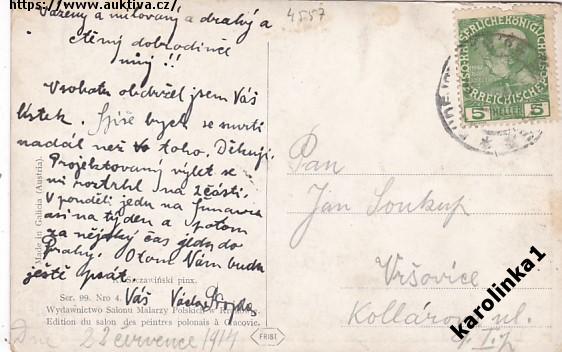 https://www.auktiva.cz/
Vážený a milovaný a drahý a
ctěný dobrodinče
můj !!
4557
V sobotu obdržel jsem Váš
lístek. Spíše bych se smrti
nadál než toho. Děkuji.
Projektovaný výlet se
mi roztrhl na 2 části.
V pondělí jedu na
asi na týden a potom
za nějaký čas jedu do
Prahy. O tom Vám budu
ještě psát.
Váš Václav
Made in Galicia (Austria).
Szczawiński pinx.
Ser. 99. Nro 4.
Wydawnictwo Salonu Malarzy Polskich w
Edition du salon des peintres polonais à Cracovie.
FRIST
Dne 22 července 1914
KAISERLICHE KÖNIGLICHE
ÖSTERREICHISCHE
5 HELLER 5
Pan
Jan Soukup
Vršovice
Kollárova ul.
č.
karolinka1